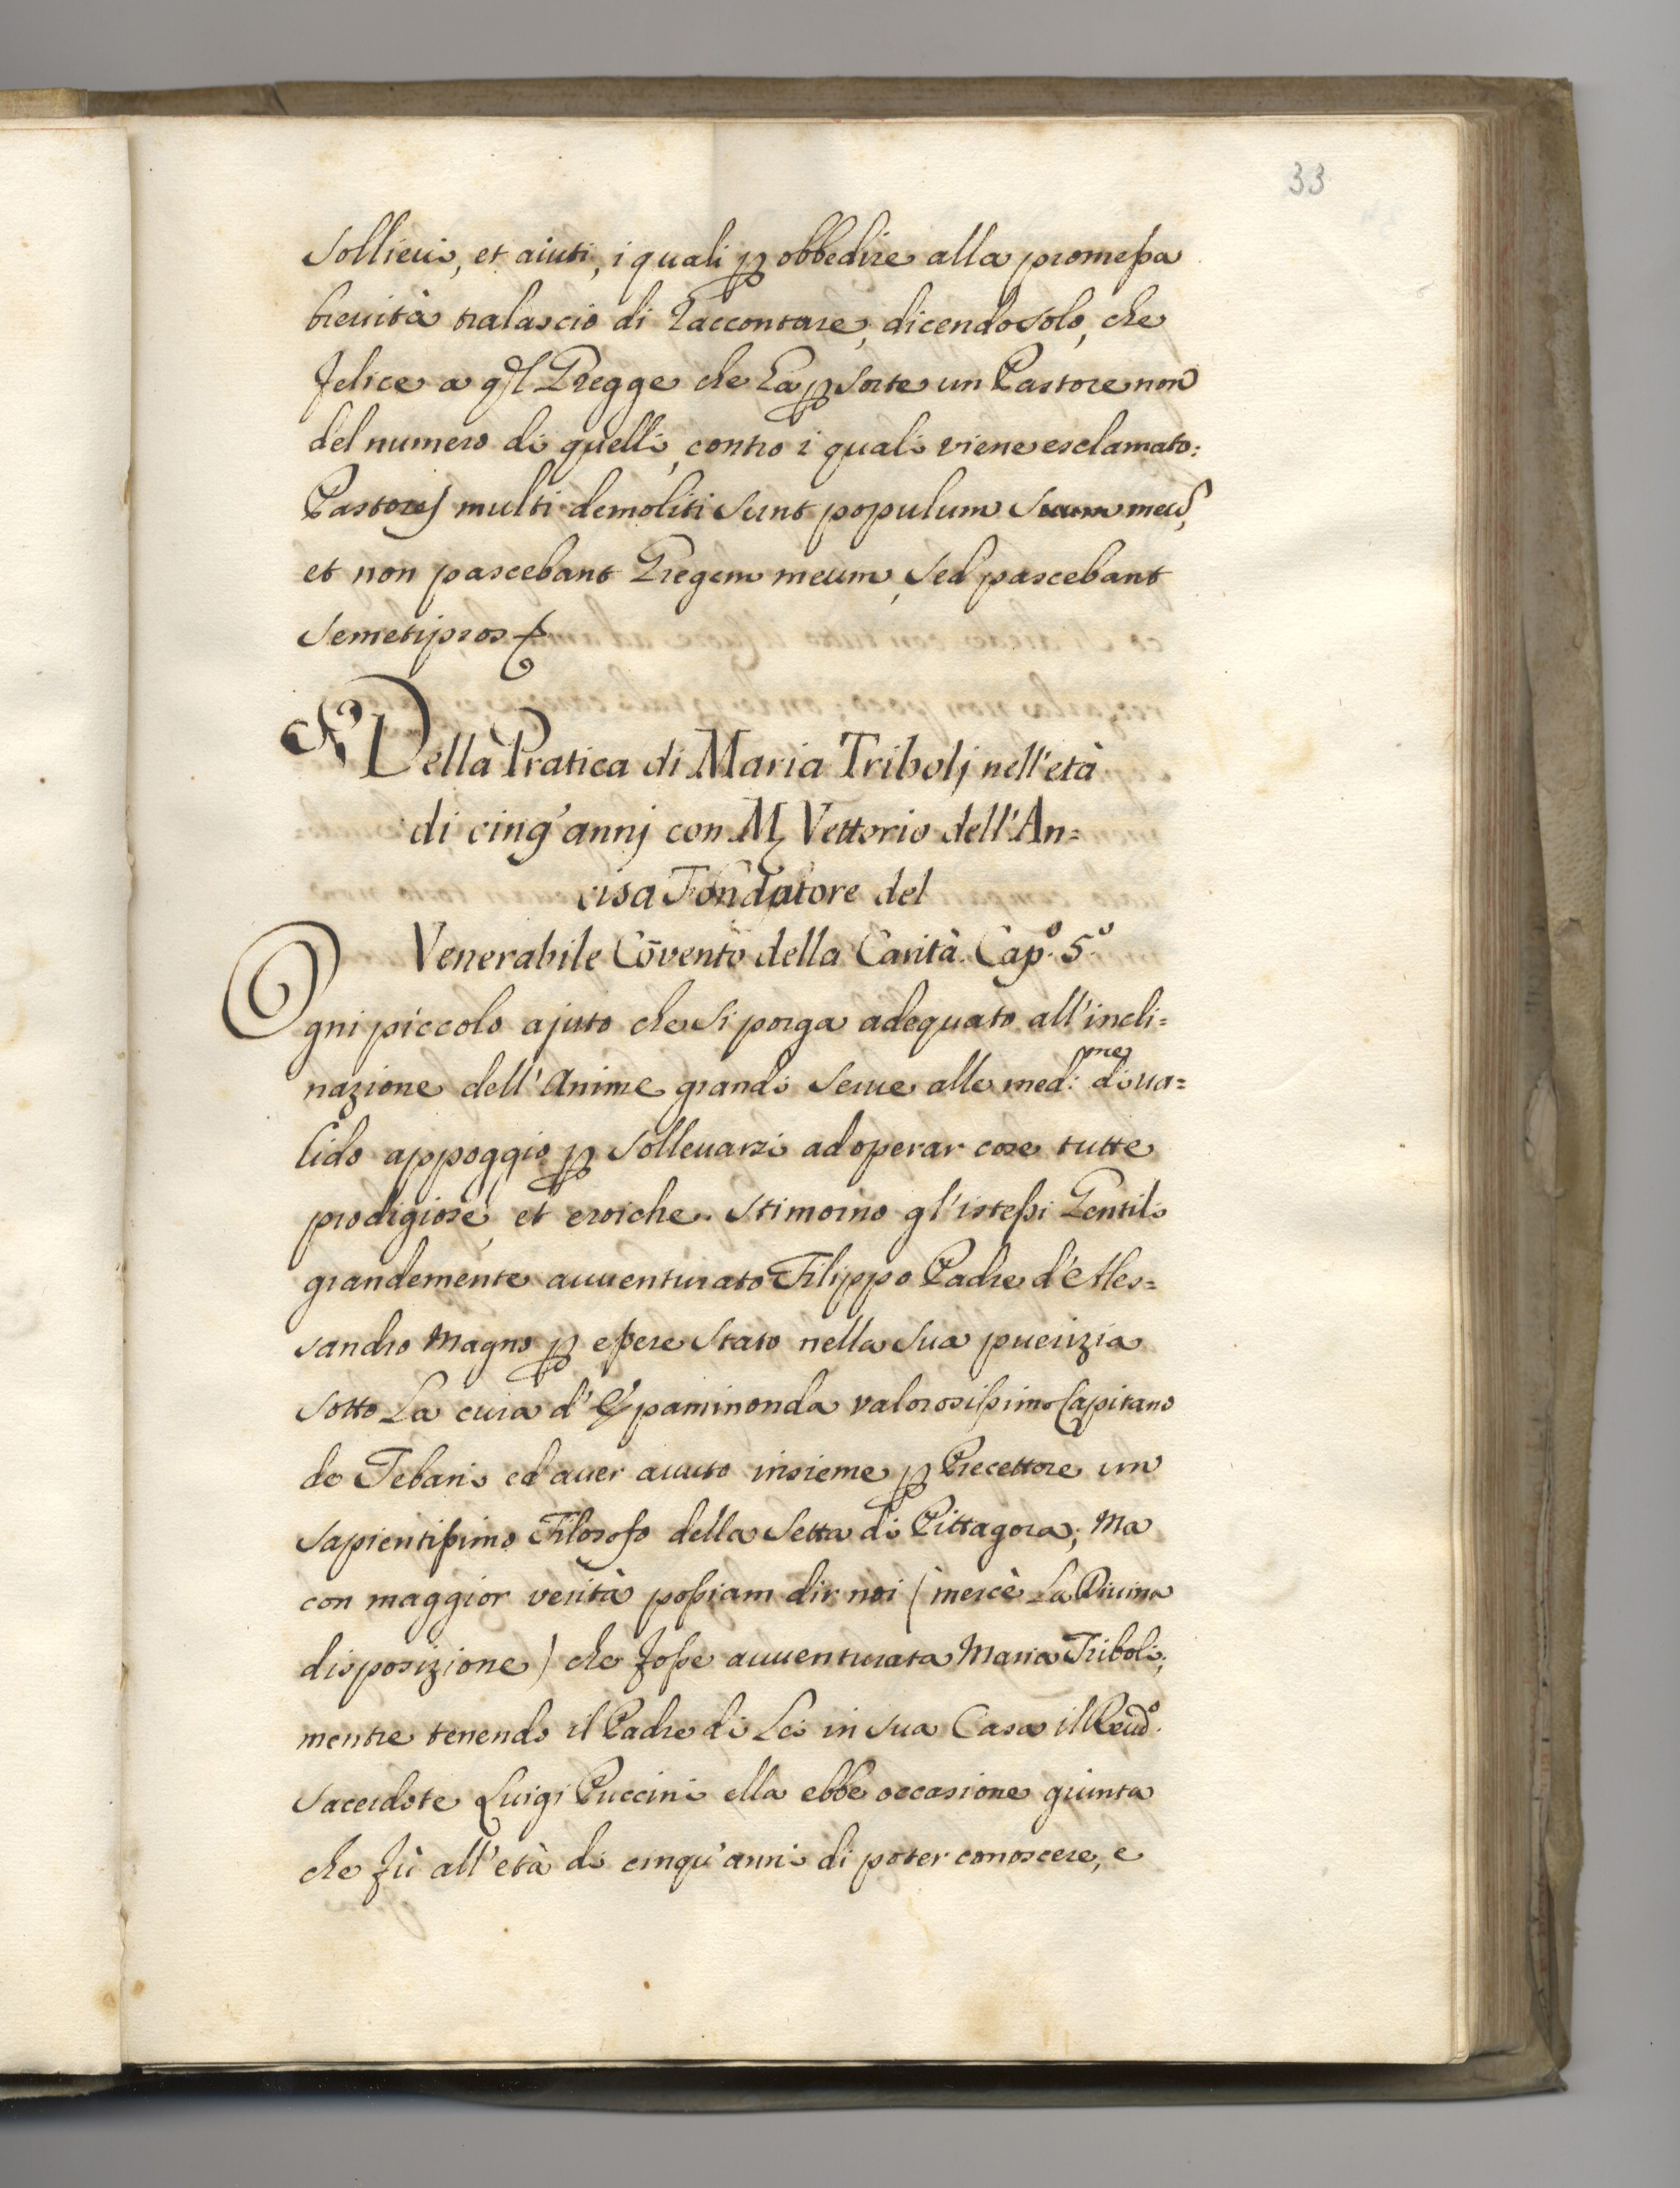 33
sollieui, et aiuti, i quali p obbedire alla promessa
breuità tralascio di raccontare, dicendo solo, che
felice a ql Gregge che ha p sorte un Pastore non
del numero di quelli, contro i quali viene esclamato:
Pastores multi demoliti sunt populum suum meũ,
et non pascebant Gregem meum, sed pascebant
semetipsos
Della Pratica di Maria Tribolj nell'età
di cinq'annj con M. Vettorio dell'An=
cisa Fondatore del
Venerabile Cõvento della Carità. Cap.º 5.º
Ogni piccolo ajuto che si porga adequato all'incli=
nazione dell'Anime grandi serue alle med:me di ua=
lido appoggio p solleuarsi ad operar cose tutte
prodigiose, et eroiche. Stimorno gl'istessi Gentili
grandemente auuenturato Filippo Padre d'Ales=
sandro Magno p essere stato nella sua puerizia
sotto La cura d'Epaminonda valorosissimo Capitano
de Tebani ed auer auuto insieme p Precettore un
sapientissimo Filosofo della Setta di Pittagora; Ma
con maggior verità possiam dir noi (mercè La Diuina
disposizione) che fosse auuenturata Maria Triboli;
mentre tenendo il Padre di Lei in sua Casa il Reud.º
Sacerdote Luigi Puccini ella ebbe occasione giunta
che fù all'età di cinqu'anni di poter conoscere, e